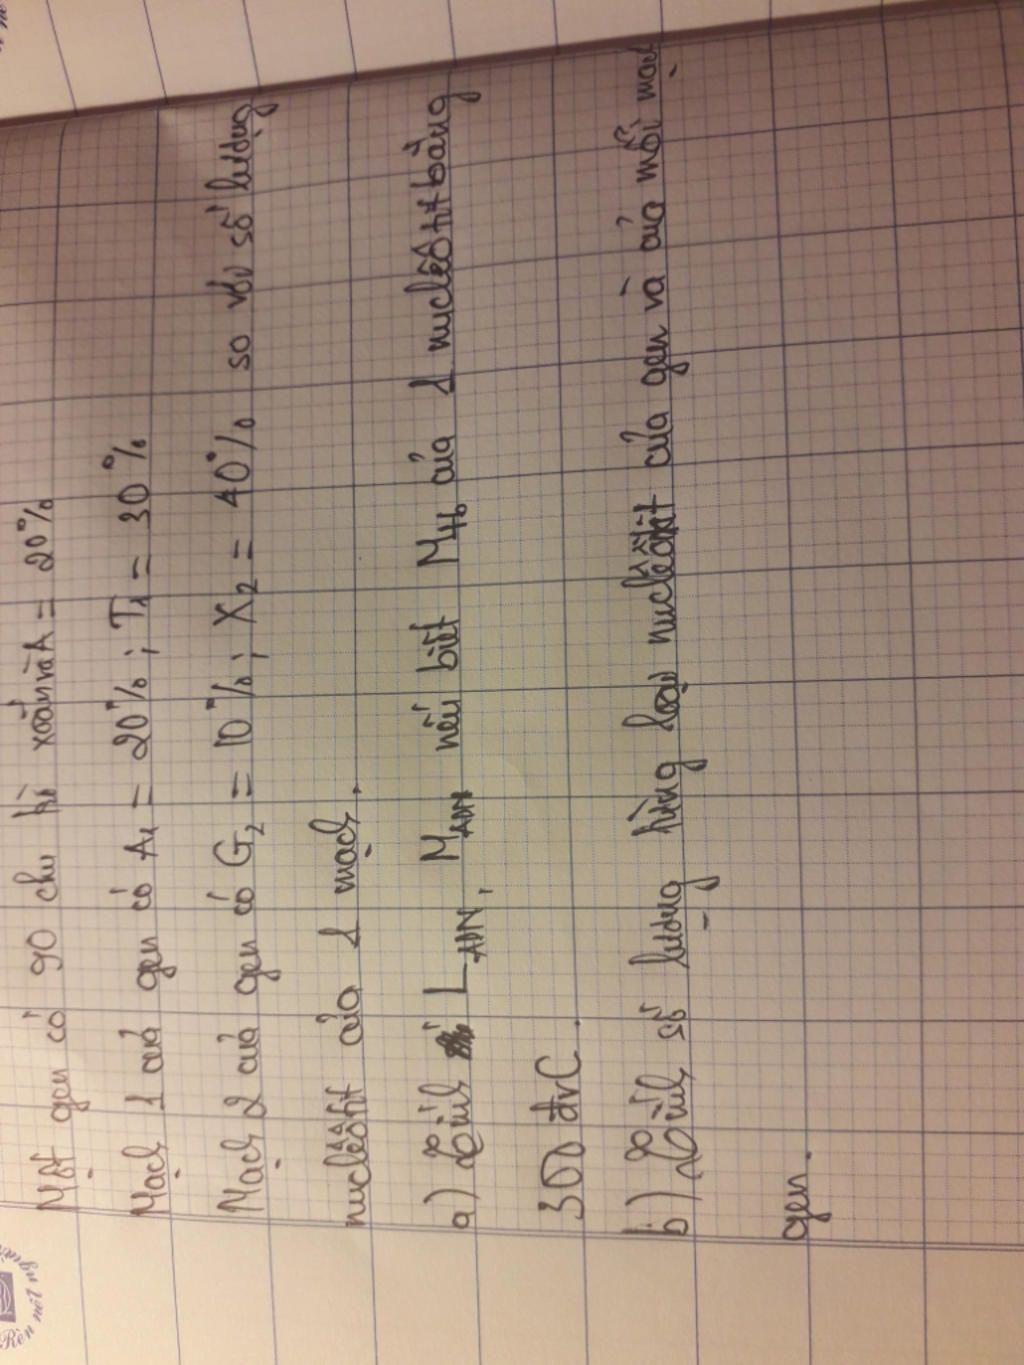 Một gen có 90 chu kì xoắn và A = 20%
Mạch 1 của gen có A₁ = 20%; T₁ = 30%
Mạch 2 của gen có G₂ = 10%; X₂ = 40% so với số lượng
nuclêôtit của 1 mạch.
a) Tính L ADN, M ADN nếu biết M Tb của 1 nuclêôtit bằng
300 đvC.
b) Tính số lượng từng loại nuclêôtit của gen và của mỗi mạch
gen.
Rèn nết người